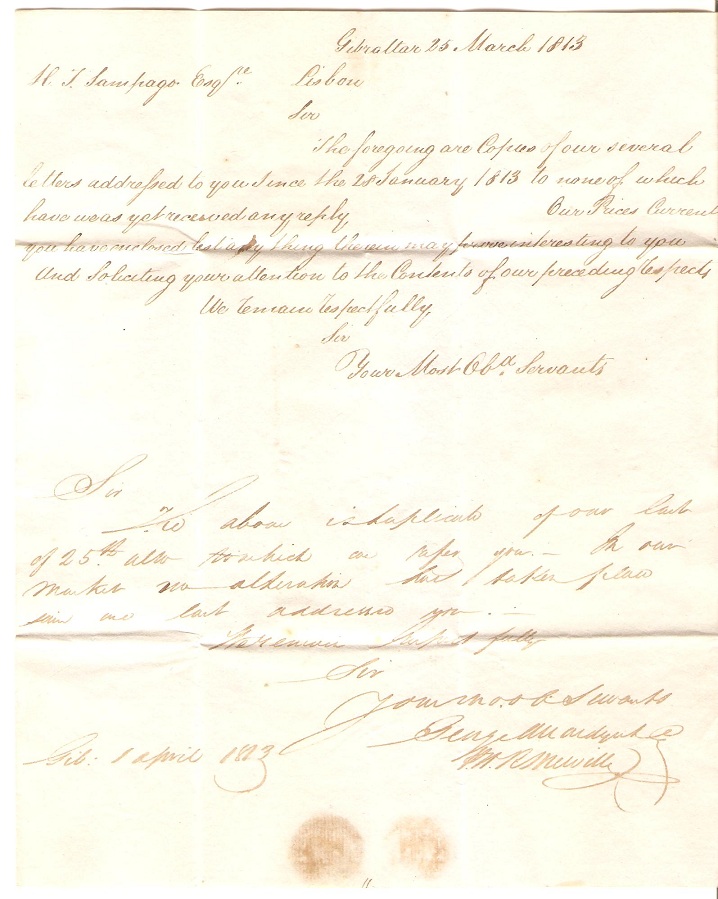 Gibralter 25 March 1813
H. T. Sampayo Esqre. Lisbon
Sir
The foregoing are Copies of our several
letters addressed to you Since the 28 January 1813 to none of which
have we as yet received any reply Our Prices Current
you have enclosed lest any thing therein may prove interesting to you
And Soliciting your attention to the Contents of our preceding Respects
We remain respectfully
Sir
Your Most Obd. Servants
Sir
The above is duplicate of our last
of 25th ulto to which we refer you. - In our
market no alteration has taken place
since we last addressed you. -
We remain respectfully
Sir
Your mo. ob. Servants
George
Gib: 1 april 1813